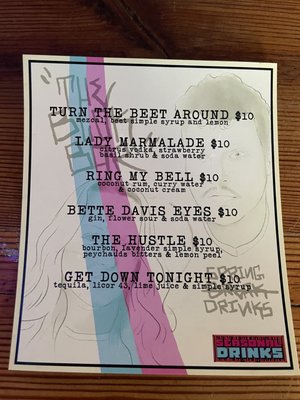 "THE
TURN THE BEET AROUND $10
mezcal, beet simple syrup and lemon
LADY MARMALADE $10
citrus vodka, strawberry
basil shrub & soda water
RING MY BELL $10
coconut rum, curry water
& coconut cream
BETTE DAVIS EYES $10
gin, flower sour & soda water
THE HUSTLE $10
bourbon, lavender simple syrup,
peychauds bitters & lemon peel
GET DOWN TONIGHT $10
tequila, licor 43, lime juice & simple syrup
SPRING
BREAK
DRINKS
SEASONAL
DRINKS